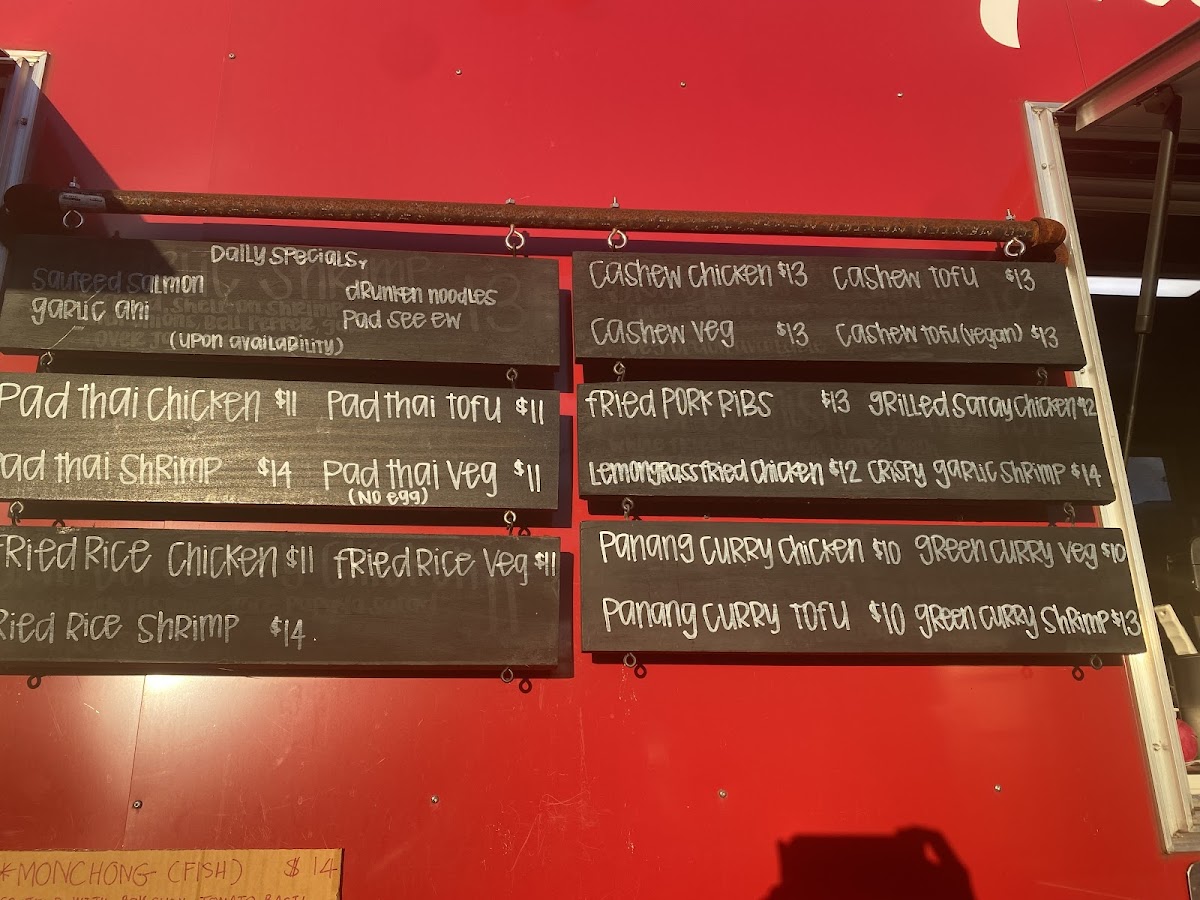 Daily Specials
Sauteed Salmon
garlic ahi
drunken noodles
Pad see ew
(upon availability)
Pad thai Chicken $11 Pad thai tofu $11
Pad thai Shrimp $14 Pad thai veg $11
(No egg)
Fried Rice Chicken $11 Fried Rice veg $11
Fried Rice Shrimp $14
Cashew Chicken $13 Cashew tofu $13
Cashew veg $13 Cashew tofu (vegan) $13
Fried Pork Ribs $13 grilled satay chicken $12
Lemongrass fried chicken $12 crispy garlic shrimp $14
Panang curry chicken $10 green curry veg $10
Panang curry tofu $10 green curry shrimp $13
*MONCHONG (FISH) $14